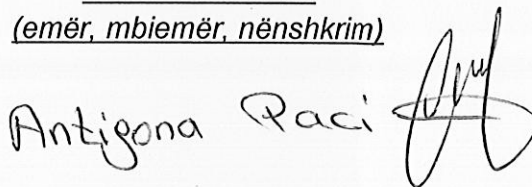 (emër, mbiemër, nënshkrim)
Antigona Paci